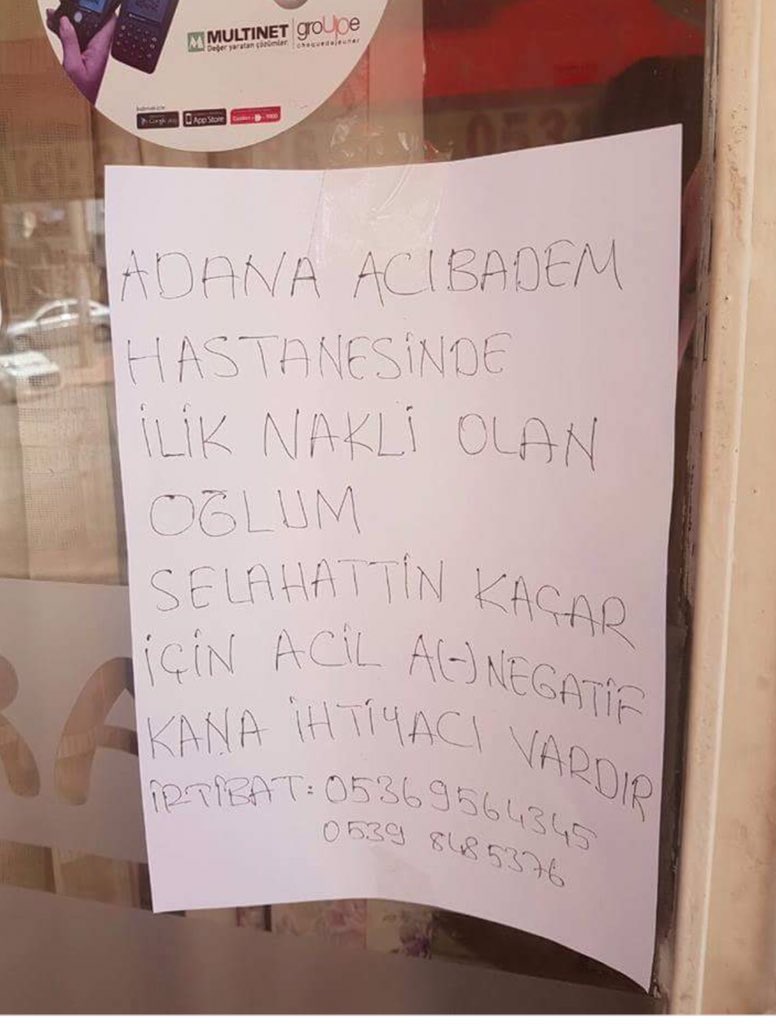 MULTINET
Değer yaratan çözümler
groupe
chequedejeuner
App Store
ADANA ACIBADEM
HASTANESİNDE
İLİK NAKLİ OLAN
OĞLUM
SELAHATTİN KAÇAR
İÇİN ACİL A(-)NEGATİF
KANA İHTİYACI VARDIR
İRTİBAT: 05369564345
0539 8485376